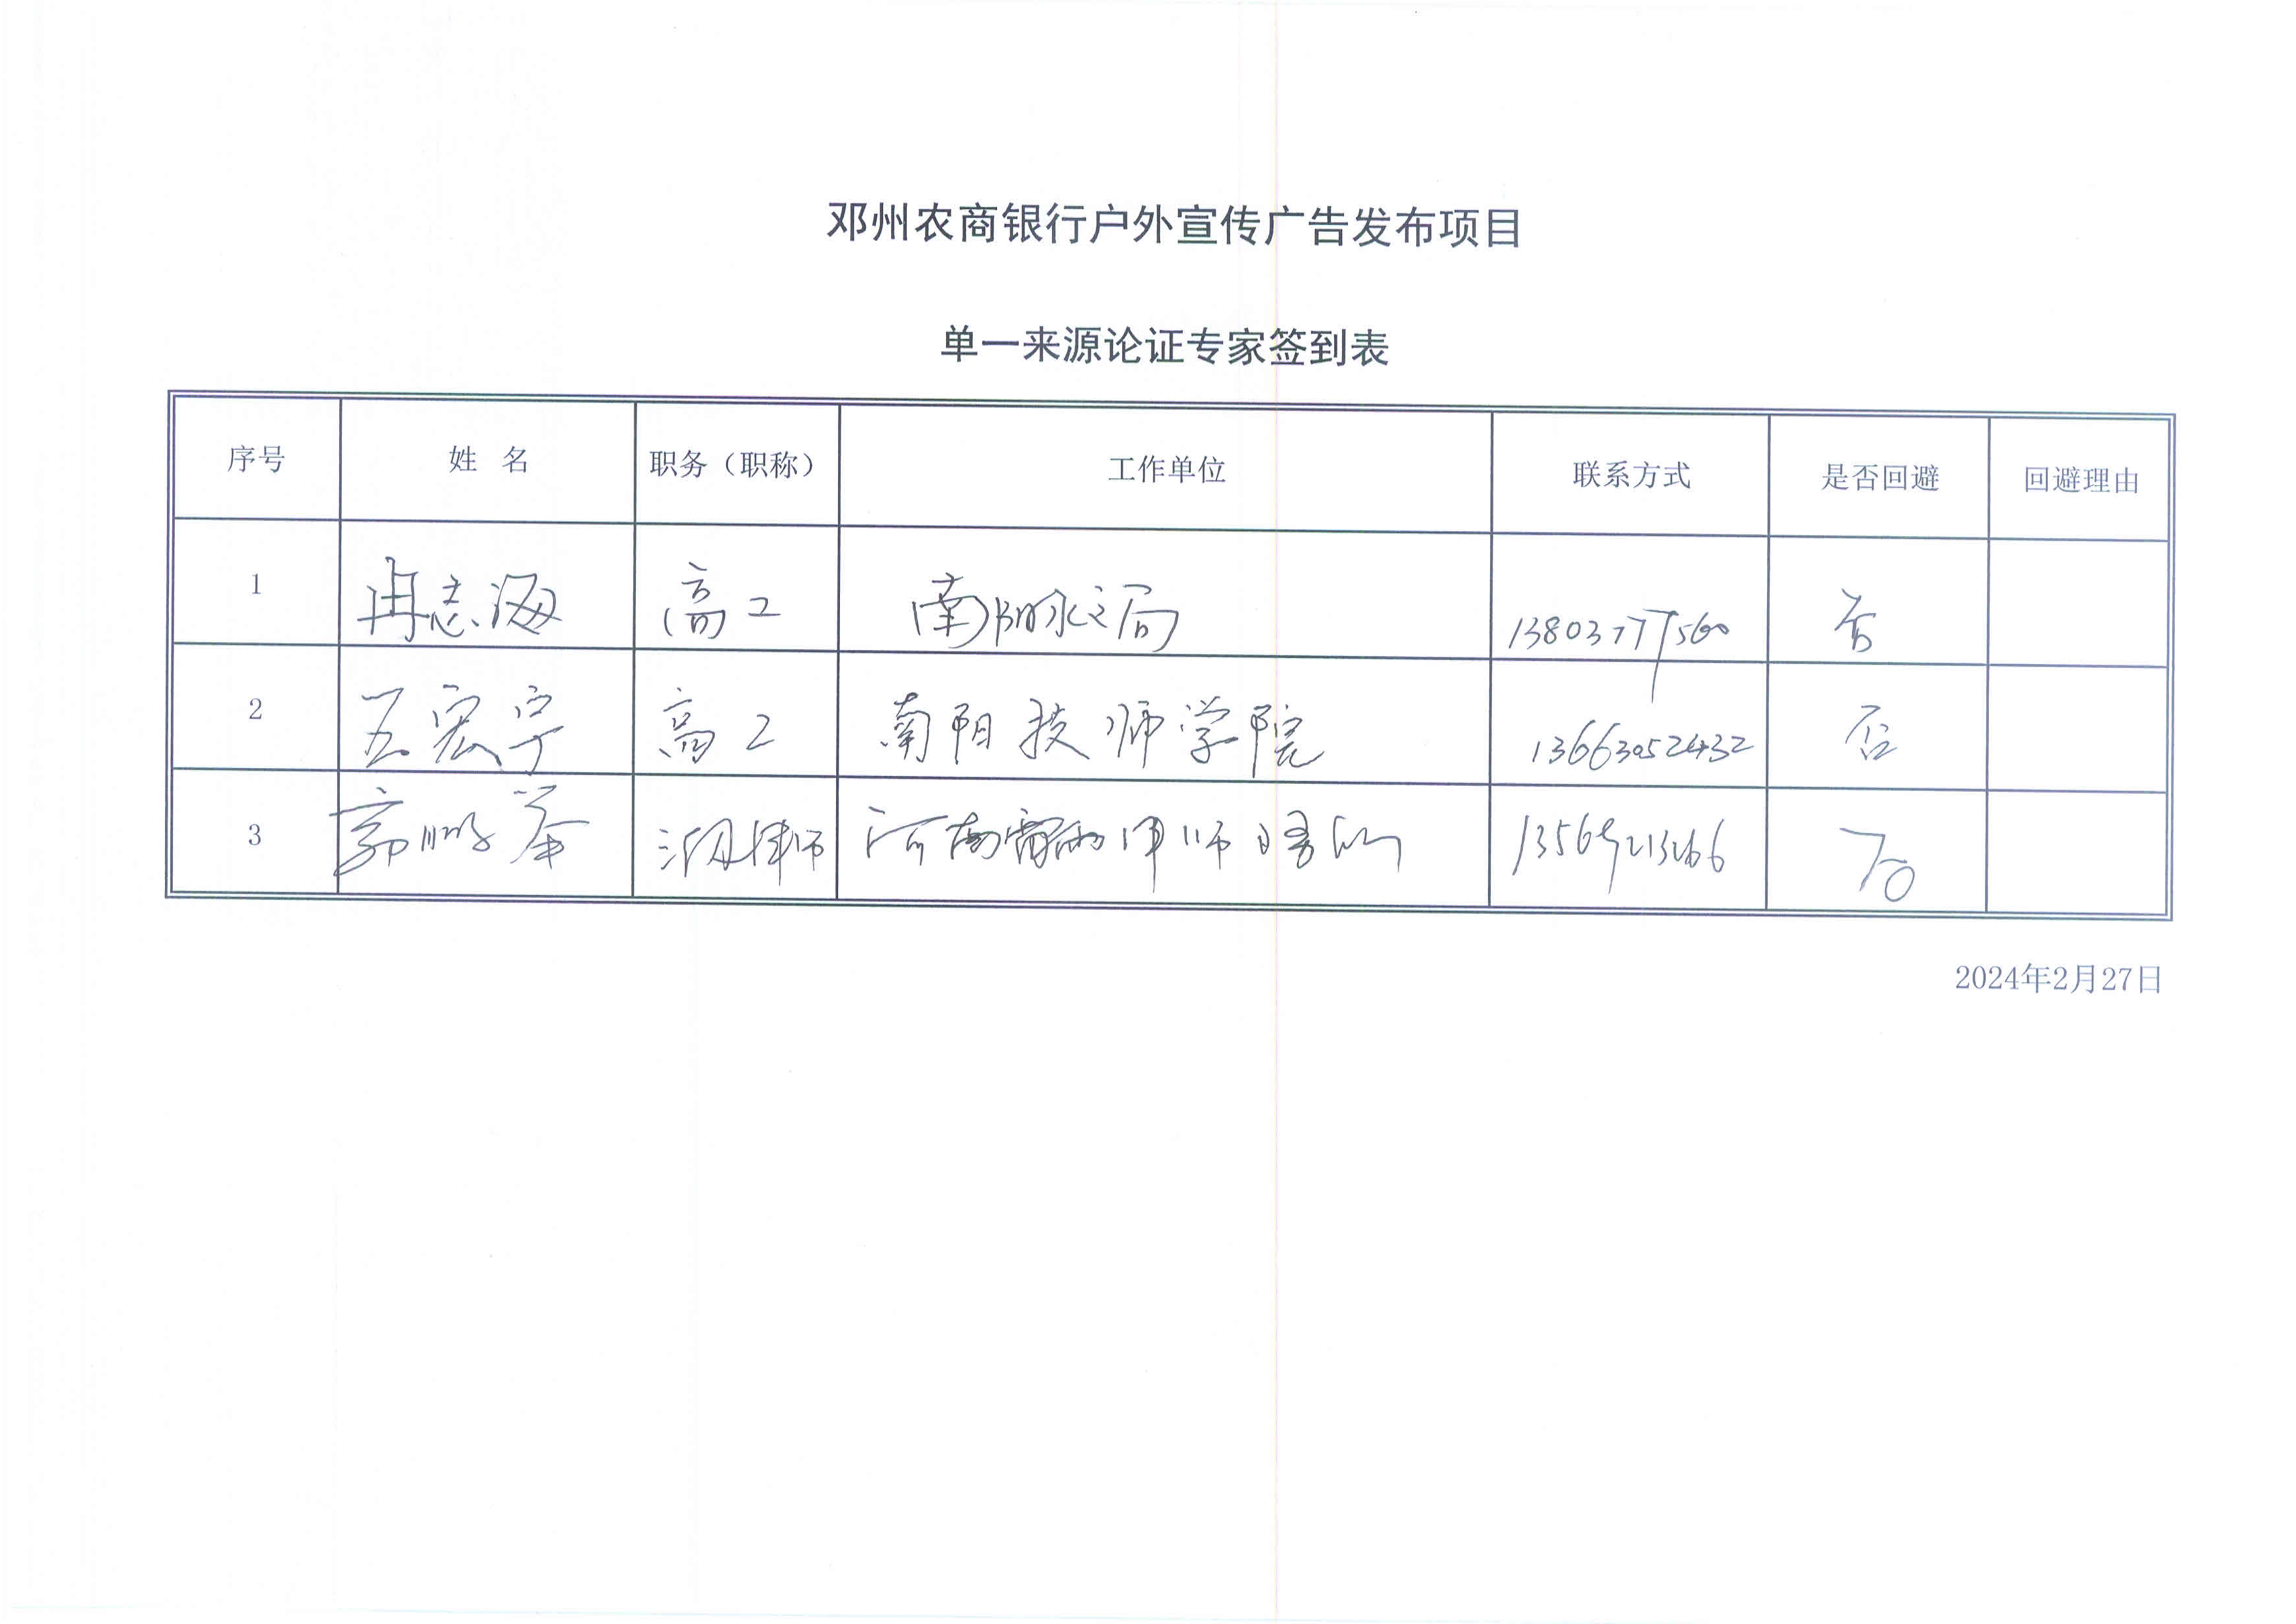 邓州农商银行户外宣传广告发布项目
单一来源论证专家签到表
序号 姓 名 职务（职称） 工作单位 联系方式 是否回避 回避理由
1 冉志海 高工 南阳水文局 13803777560 否
2 王宏宇 高工 南阳技师学院 13663052432 否
3 郭鹏举 律师 河南 律师事务所 否
2024年2月27日